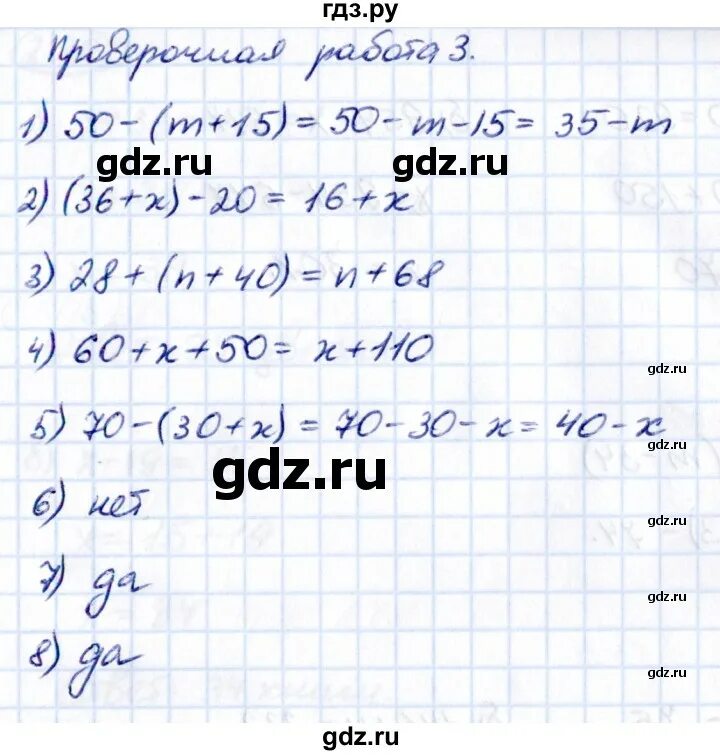 гдз.ру
Проверочная работа 3.
1) 50-(m+15)=50-m-15= 35-m
gdz.ru gdz.ru
2) (36+x)-20= 16+x
3) 28+(n+40)=n+68
4) 60+x+50= x+110
gdz.ru
5) 70-(30+x)=70-30-x=40-x
gdz.ru
gdz.ru
6) нет
gdz.ru
7) да
gdz.ru
8) да
gdz.ru
gdz.ru